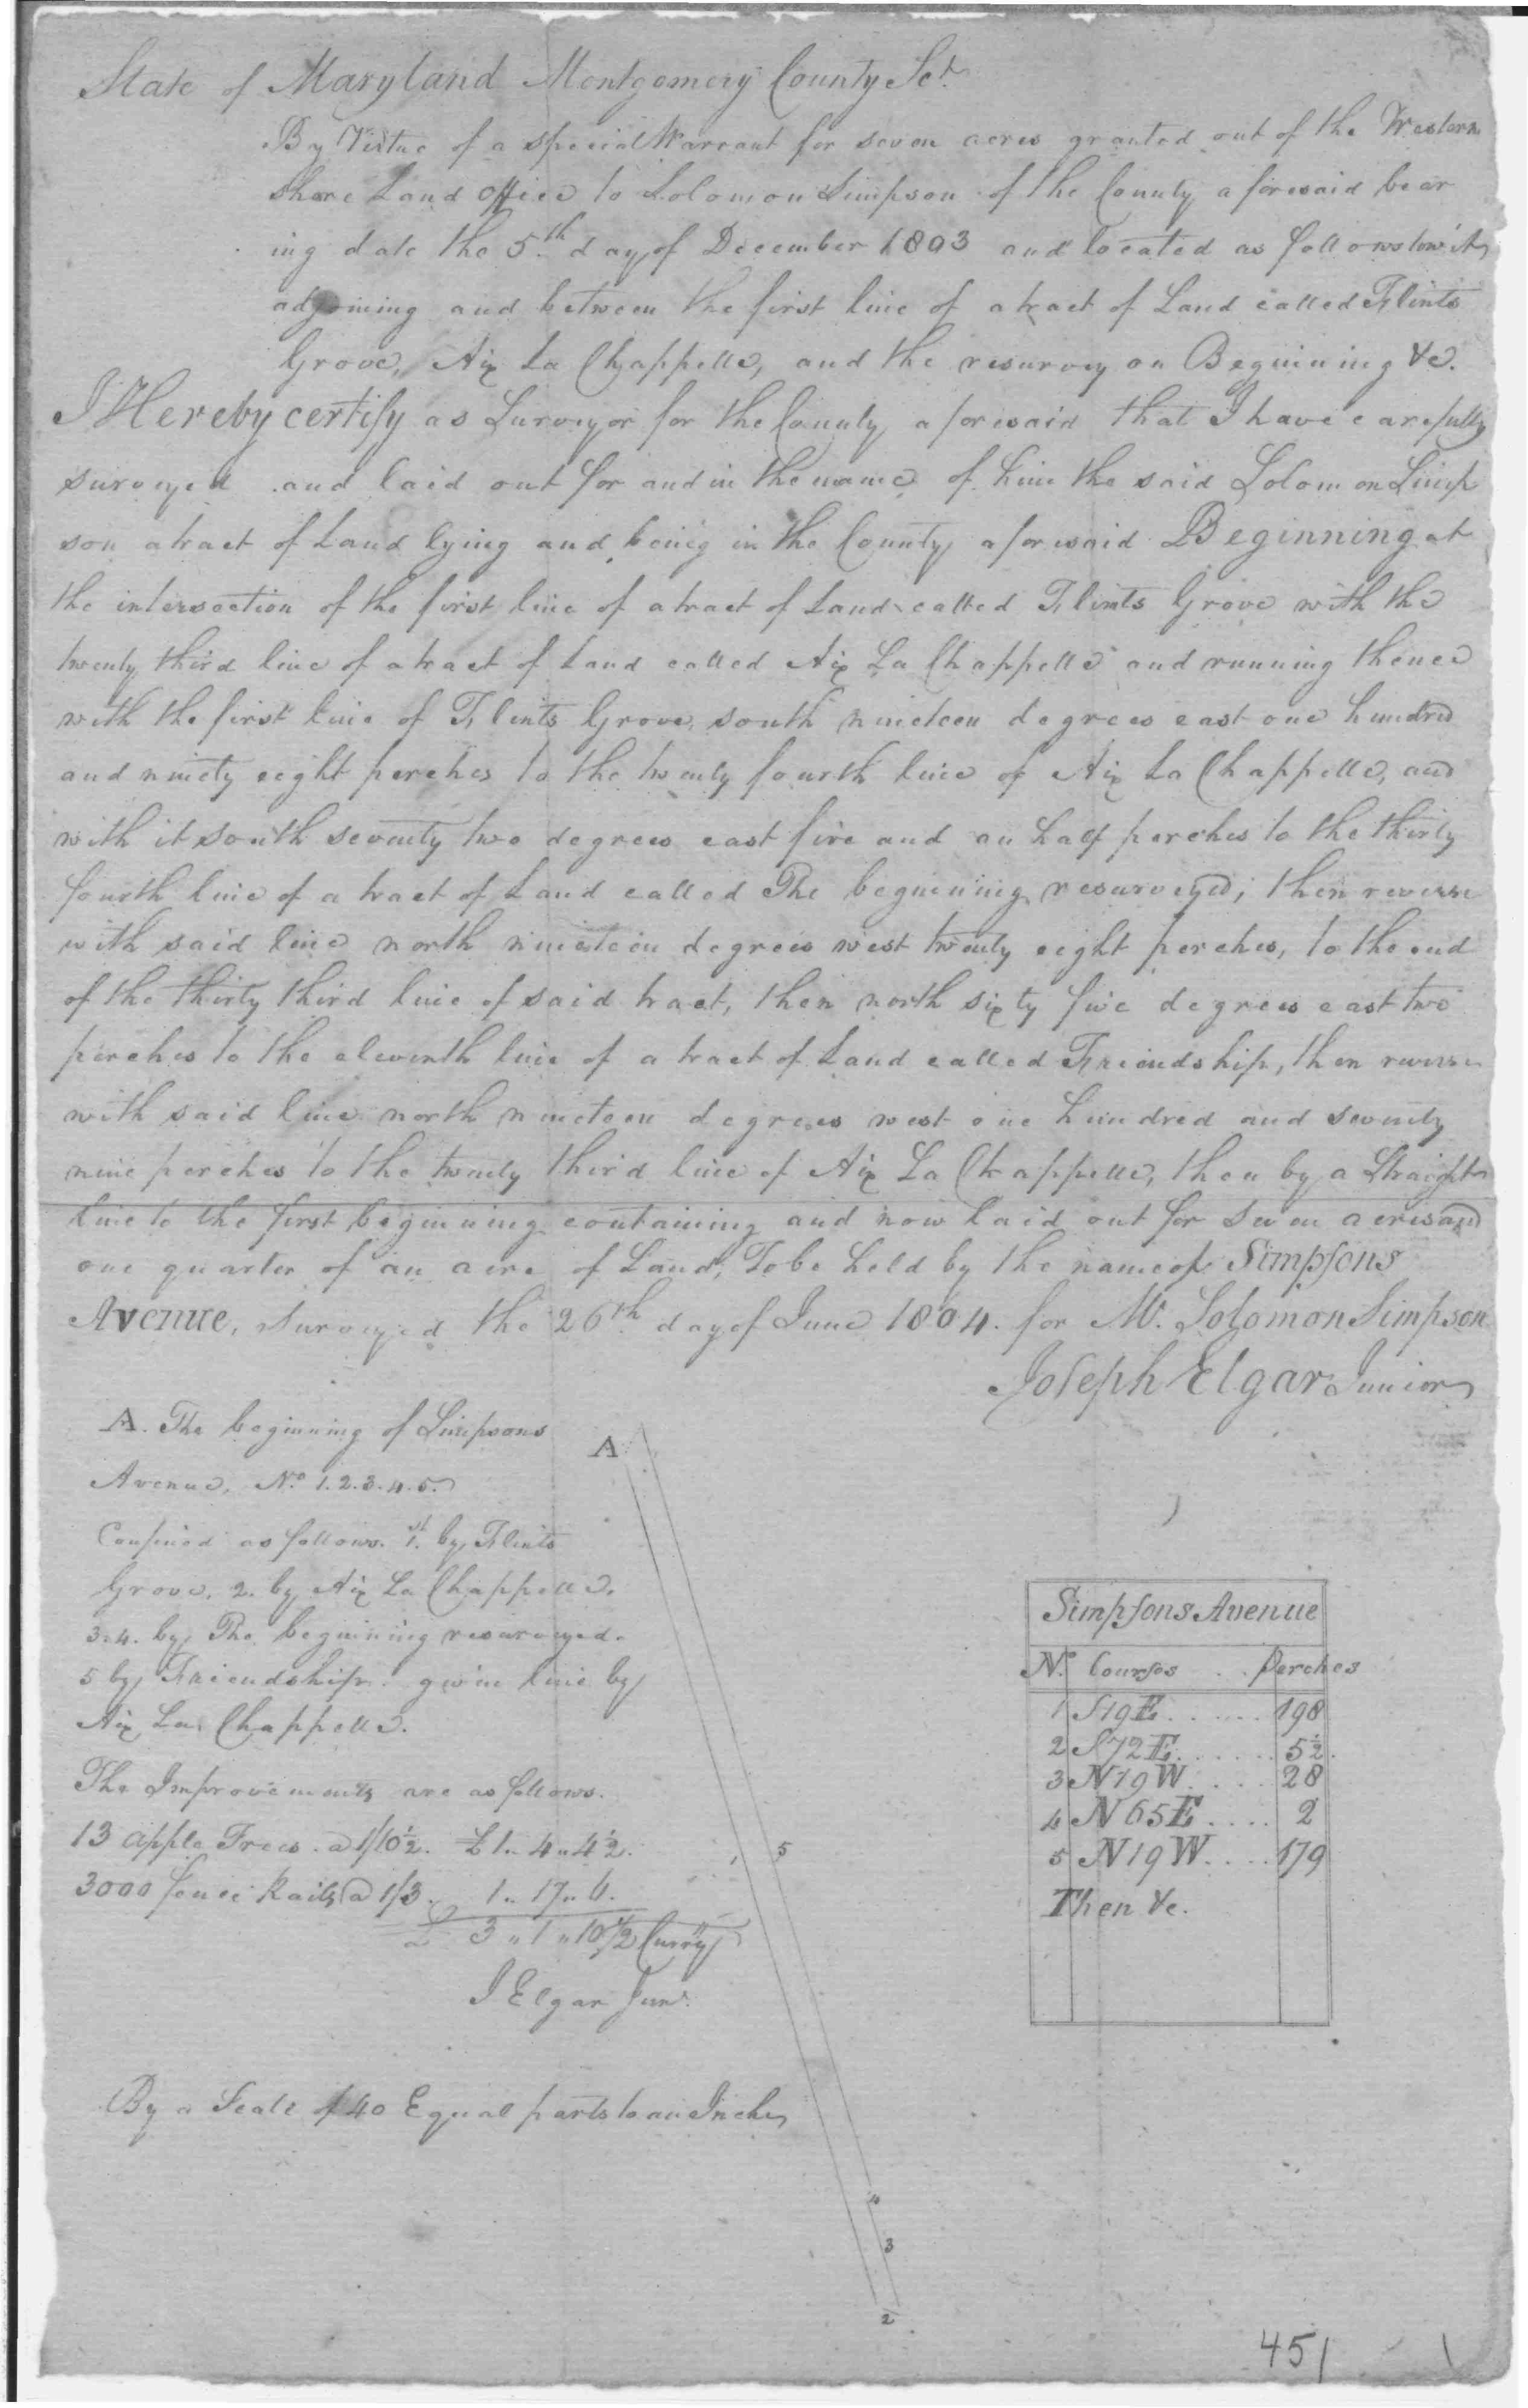 State of Maryland Montgomery County Sct.
By Virtue of a special Warrant for seven acres granted out of the Western
shore Land Office to Solomon Simpson of the County aforesaid bear
ing date the 5th day of December 1803 and located as follows towit,
adjoining and between the first line of a tract of Land called Flints
Grove, Aix La Chappelle, and the resurvey on Beginning &c.
I Hereby certify as Surveyor for the County aforesaid that I have carefully
surveyed and laid out for and in the name of him the said Solomon Simp
son a tract of Land lying and being in the County aforesaid Beginning at
the intersection of the first line of a tract of Land called Flints Grove with the
twenty third line of a tract of Land called Aix La Chappelle and running thence
with the first line of Flints Grove, south nineteen degrees east one hundred
and ninety eight perches to the twenty fourth line of Aix La Chappelle, and
with it south seventy two degrees east five and an half perches to the thirty
fourth line of a tract of Land called The beginning resurveyed; then reverse
with said line north nineteen degrees west twenty eight perches, to the end
of the thirty third line of said tract, then north sixty five degrees east two
perches to the eleventh line of a tract of Land called Friendship, then reverse
with said line north nineteen degrees west one hundred and seventy
nine perches to the twenty third line of Aix La Chappelle, then by a Straight
line to the first beginning containing and now laid out for seven acres and
one quarter of an acre of Land, To be held by the name of Simpsons
Avenue, surveyed the 26th day of June 1804. for Mr. Solomon Simpson
Joseph Elgar Junior
A. The beginning of Simpsons
Avenue, No. 1.2.3.4.5.
Confined as follows. 1st. by Flints
Grove, 2. by Aix La Chappelle.
3.4. by The beginning resurveyed.
5 by Friendship. given line by
Aix La Chappelle.
The Improvements are as follows.
13 apple Trees a 1/10½. £1..4..4½.
3000 fence Rails a 1/3. 1..17..6.
£ 3..1..10½ Curry
J Elgar Junr.
By a Scale of 40 Equal parts to an Inch
A
1
5
4
3
2
Simpsons Avenue
No. Courses Perches
1 S19E...... 198
2 S72E...... 5½.
3 N19W.... 28
4 N65E.... 2
5 N19W.... 179
Then &c.
451